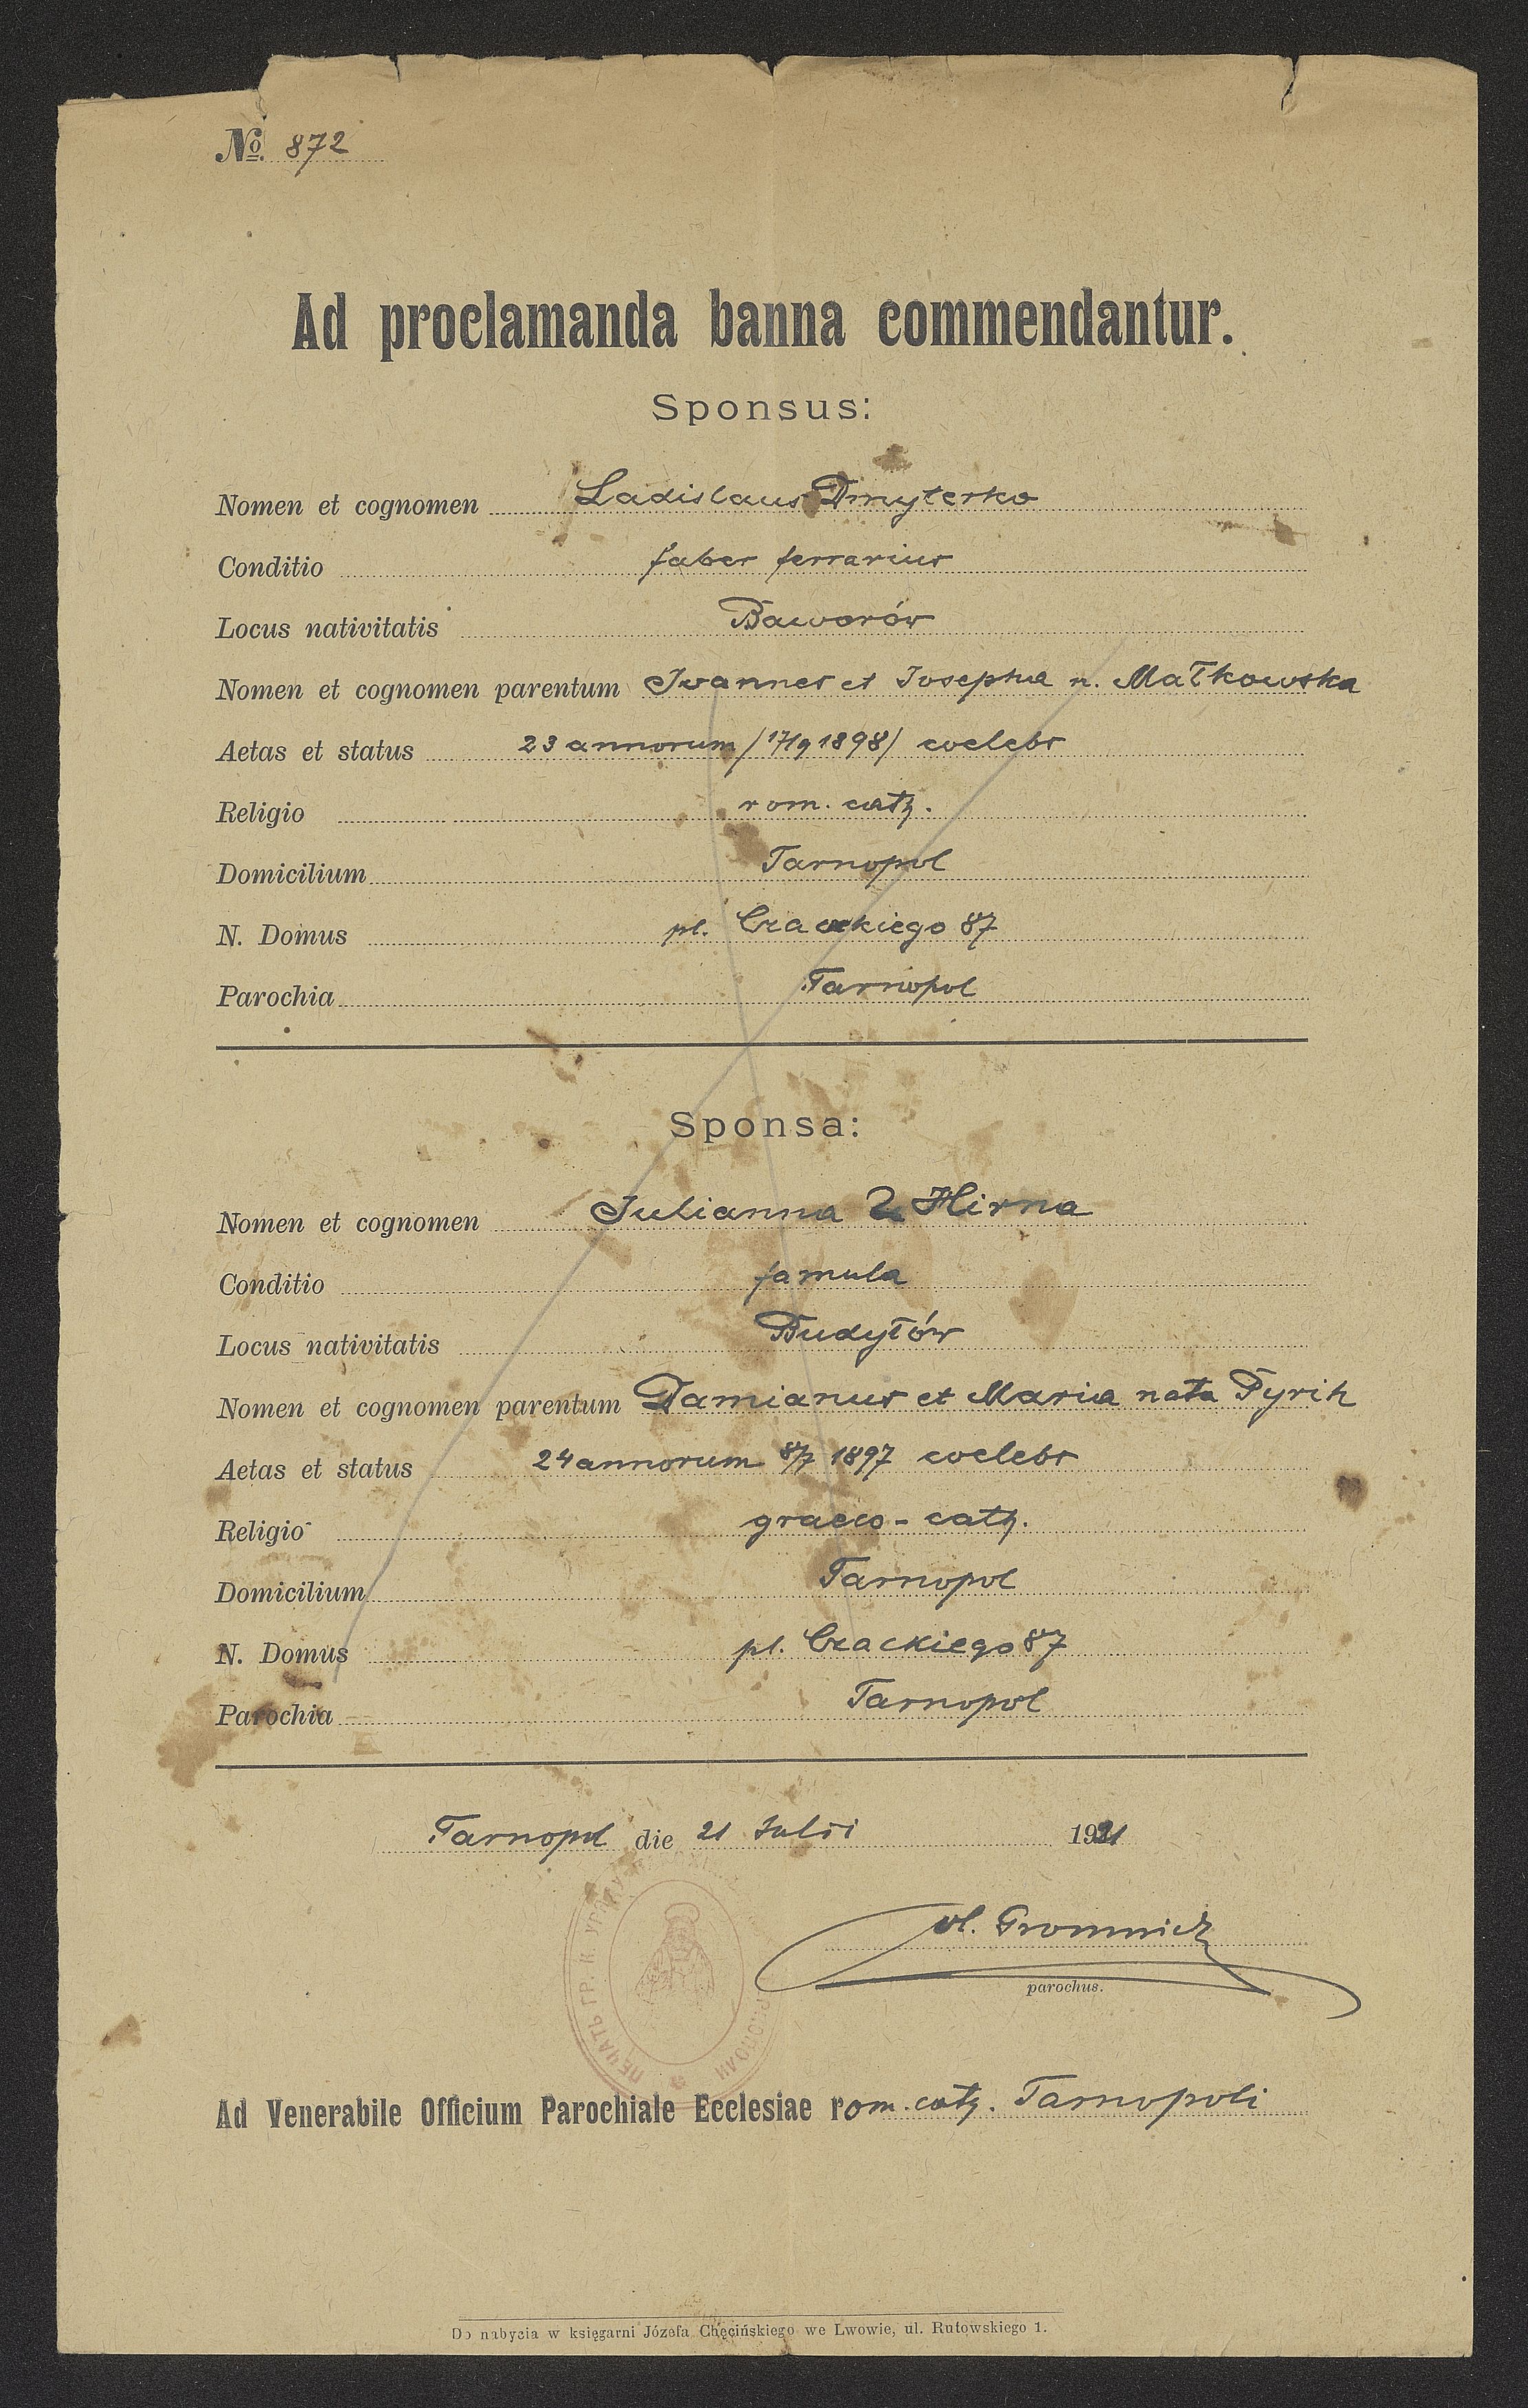 № 872
Ad proclamanda banna commendantur.
Sponsus:
Nomen et cognomen Ladislaus Dmyterko
Conditio faber ferrarius
Locus nativitatis Baworów
Nomen et cognomen parentum Ioannes et Iosepha n. Małkowska
Aetas et status 23 annorum /17/9 1898/ coelebs
Religio rom. cath.
Domicilium Tarnopol
N. Domus pl. Czackiego 87
Parochia Tarnopol
Sponsa:
Nomen et cognomen Julianna Hirna
Conditio famula
Locus nativitatis Budyłów
Nomen et cognomen parentum Damianus et Maria nata Pyrih
Aetas et status 24 annorum 8/7 1897 coelebs
Religio graeco-cath.
Domicilium Tarnopol
N. Domus pl. Czackiego 87
Parochia Tarnopol
Tarnopol die 21 Julii 1921
Gromnicki
parochus.
ПЕЧАТЬ ГР. К.
Ad Venerabile Officium Parochiale Ecclesiae rom. cath. Tarnopoli
Do nabycia w księgarni Józefa Chęcińskiego we Lwowie, ul. Rutowskiego 1.